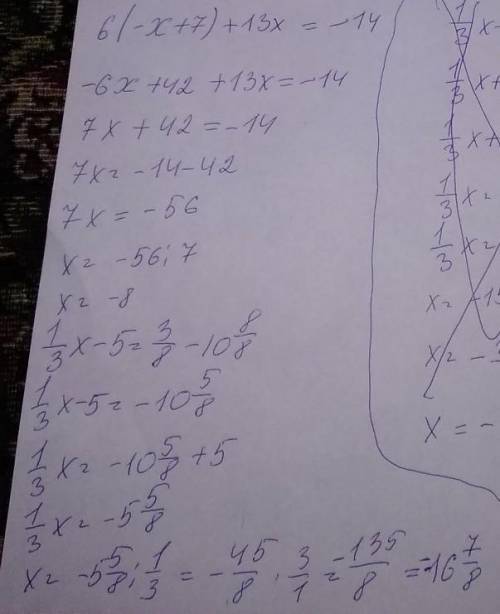 6(-x+7)+13x = -14
-6x+42+13x=-14
7x+42=-14
7x=-14-42
7x=-56
x=-56:7
x=-8
1/3 x-5=3/8-10 8/8
1/3 x-5=-10 5/8
1/3 x=-10 5/8+5
1/3 x=-5 5/8
x=-5 5/8:1/3=-45/8·3/1=-135/8=-16 7/8
1/3 x-
1/3 x+
1/3 x+
1/3 x=
1/3 x=
x=-15
x=-
x=-